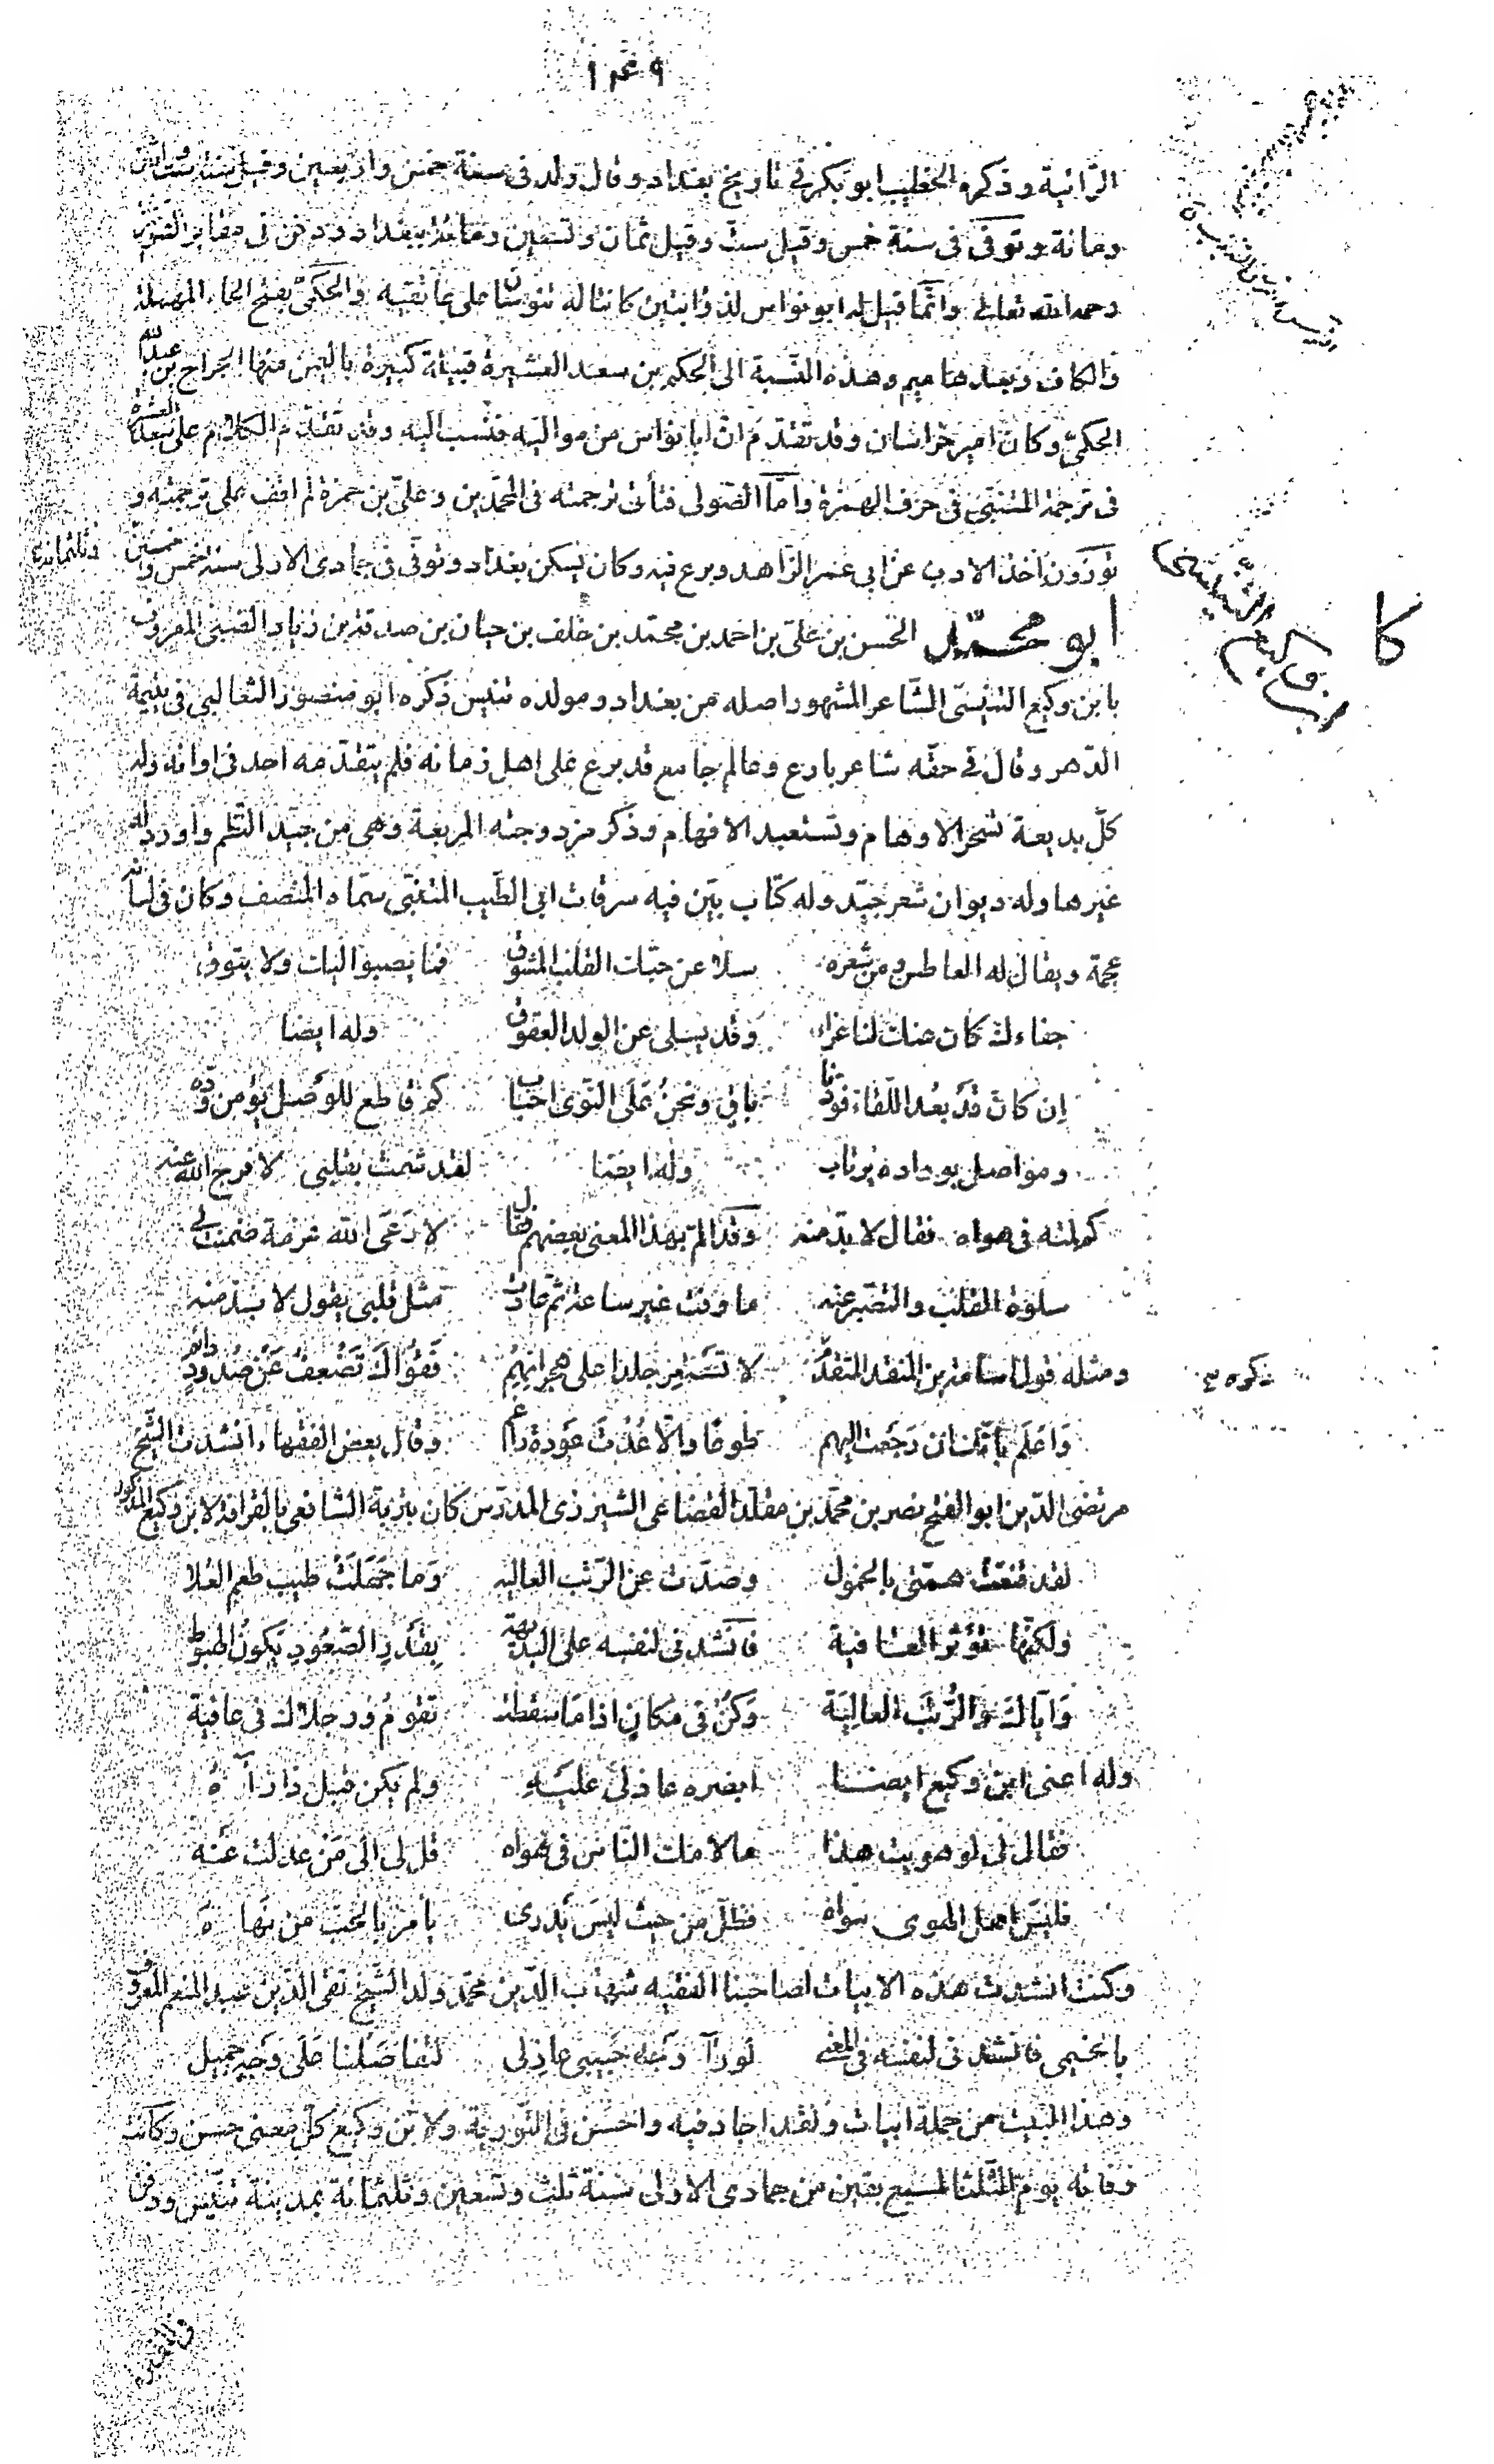 ١٤٩
الرائية وذكره الخطيب ابو بكر فى تاريخ بغداد وقال ولد فى سنة خمس واربعين وقيل سنة ست وثلثين
ومائة وتوفى فى سنة خمس وقيل ست وقيل ثمان وتسعين ومائة ببغداد ودفن فى مقابر الشونيزى
رحمه الله تعالى وانّما قيل له ابو نواس لذؤابتين كانتا له تنوسان على عاتقيه والحكمىّ بفتح الحاء المهملة
والكاف وبعدها ميم وهذه النّسبة الى الحكم بن سعد العشيرة قبيلة كبيرة باليمن منها الجراح بن عبد الله
الحكمىّ وكان امير خراسان وقد تقدّم انّ ابا نواس من مواليه فنسب اليه وقد تقدّم الكلام على سعد العشيرة
فى ترجمة المتنبّى فى حرف الهمزة وامّا الصّولى فتأتى ترجمته فى المحمّدين وعلىّ بن حمزة لم اقف على ترجمته و
توزون اخذ الادب عن ابى عمر الزّاهد وبرع فيه وكان يسكن بغداد وتوفّى فى جمادى الاولى سنة خمس وخمسين وثلثمائة
كا
ابن وكيع التنّيسى
ابو محمّد الحسن بن علىّ بن احمد بن محمّد بن خلف بن حيان بن صدقة بن زياد الضبىّ المعروف
بابن وكيع التنيسىّ الشّاعر المشهور اصله من بغداد ومولده تنيس ذكره ابو منصور الثعالبى فى يتيمة
الدّهر وقال فى حقّه شاعر بارع وعالم جامع قد برع على اهل زمانه فلم يتقدّمه احد فى اوانه وله
كلّ بديعة تسحر الاوهام وتستعبد الافهام وذكر مزدوجته المربعة وهى من جيّد النّظم واورد له
غيرها وله ديوان شعر جيّد وله كتاب بيّن فيه سرقات ابى الطّيب المتنبّى سمّاه المنصف وكان فى لسانه
عجمة ويقال له العاطس ومن شعره سلا عن حبّك القلب المشوق فما يصبو اليك ولا يتوق
جفاءك كان عنك لنا عزاء وقد يسلى عن الولد العقوق وله ايضا
إن كان قد بعد اللّقاء فودّنا باقٍ ونحن على النّوى احباب كم قاطع للوصل يؤمن ودّه
ومواصل بوداده يرتاب وله ايضا لقد شمت بقلبى لا فرج الله عنه
كم لمته فى هواه فقال لا بدّ منه وقد المّ بهذا المعنى بعضهم فقال لا رعى الله عزمة ضمنت لى
سلوة القلب والتصبّر عنه ما وفت غير ساعة ثمّ عادت مثل قلبى يقول لا بدّ منه
ومثله قول اسامة بن المنقذ المتقدّم ذكره لا تستعر جلدا على هجرانهم فقواك تضعف عن صدود دائم
واعلم بأنّك ان رجعت اليهم طوعا والّا عدت عودة راغم وقال بعض الفقهاء انشدت الشّيخ
مرتضى الدّين ابو الفتح نصر بن محمّد بن مقلّد القضاعى الشيزرى المدرّس كان بتربة الشافعى بالقرافة لابن وكيع المذكور
لقد قنعت همّتى بالخمول وصدّت عن الرّتب العاليه وما جهلت طيب طعم العلا
ولكنّها تؤثر العافية فانشدنى لنفسه على البديهة بقدر الصّعود يكون الهبوط
وايّاك والرّتب العالية وكن فى مكانٍ اذا ما سقطت تقوم ورجلاك فى عافية
وله اعنى ابن وكيع ايضا ابصره عاذلى عليه ولم يكن قبل ذا رآه
فقال لى لو هويت هذا ما لامك النّاس فى هواه قل لى الى من عدلت عنه
فليس اهل الهوى سواه فظلّ من حيث ليس يدرى يأمر بالحبّ من نهاه
وكنت انشدت هذه الابيات لصاحبنا الفقيه شهاب الدّين محمّد ولد الشّيخ تقى الدّين عبد المنعم المعروف
بالخيمى فانشدنى لنفسه فى المعنى لو رآ وجه حبيبى عاذلى لتفاصلنا على وجهٍ جميل
وهذا البيت من جملة ابيات ولقد اجاد فيه واحسن فى التّورية ولابن وكيع كلّ معنى حسن وكانت
وفاته يوم الثّلثا لسبع بقين من جمادى الاولى سنة ثلث وتسعين وثلثمائة بمدينة تنّيس ودفن